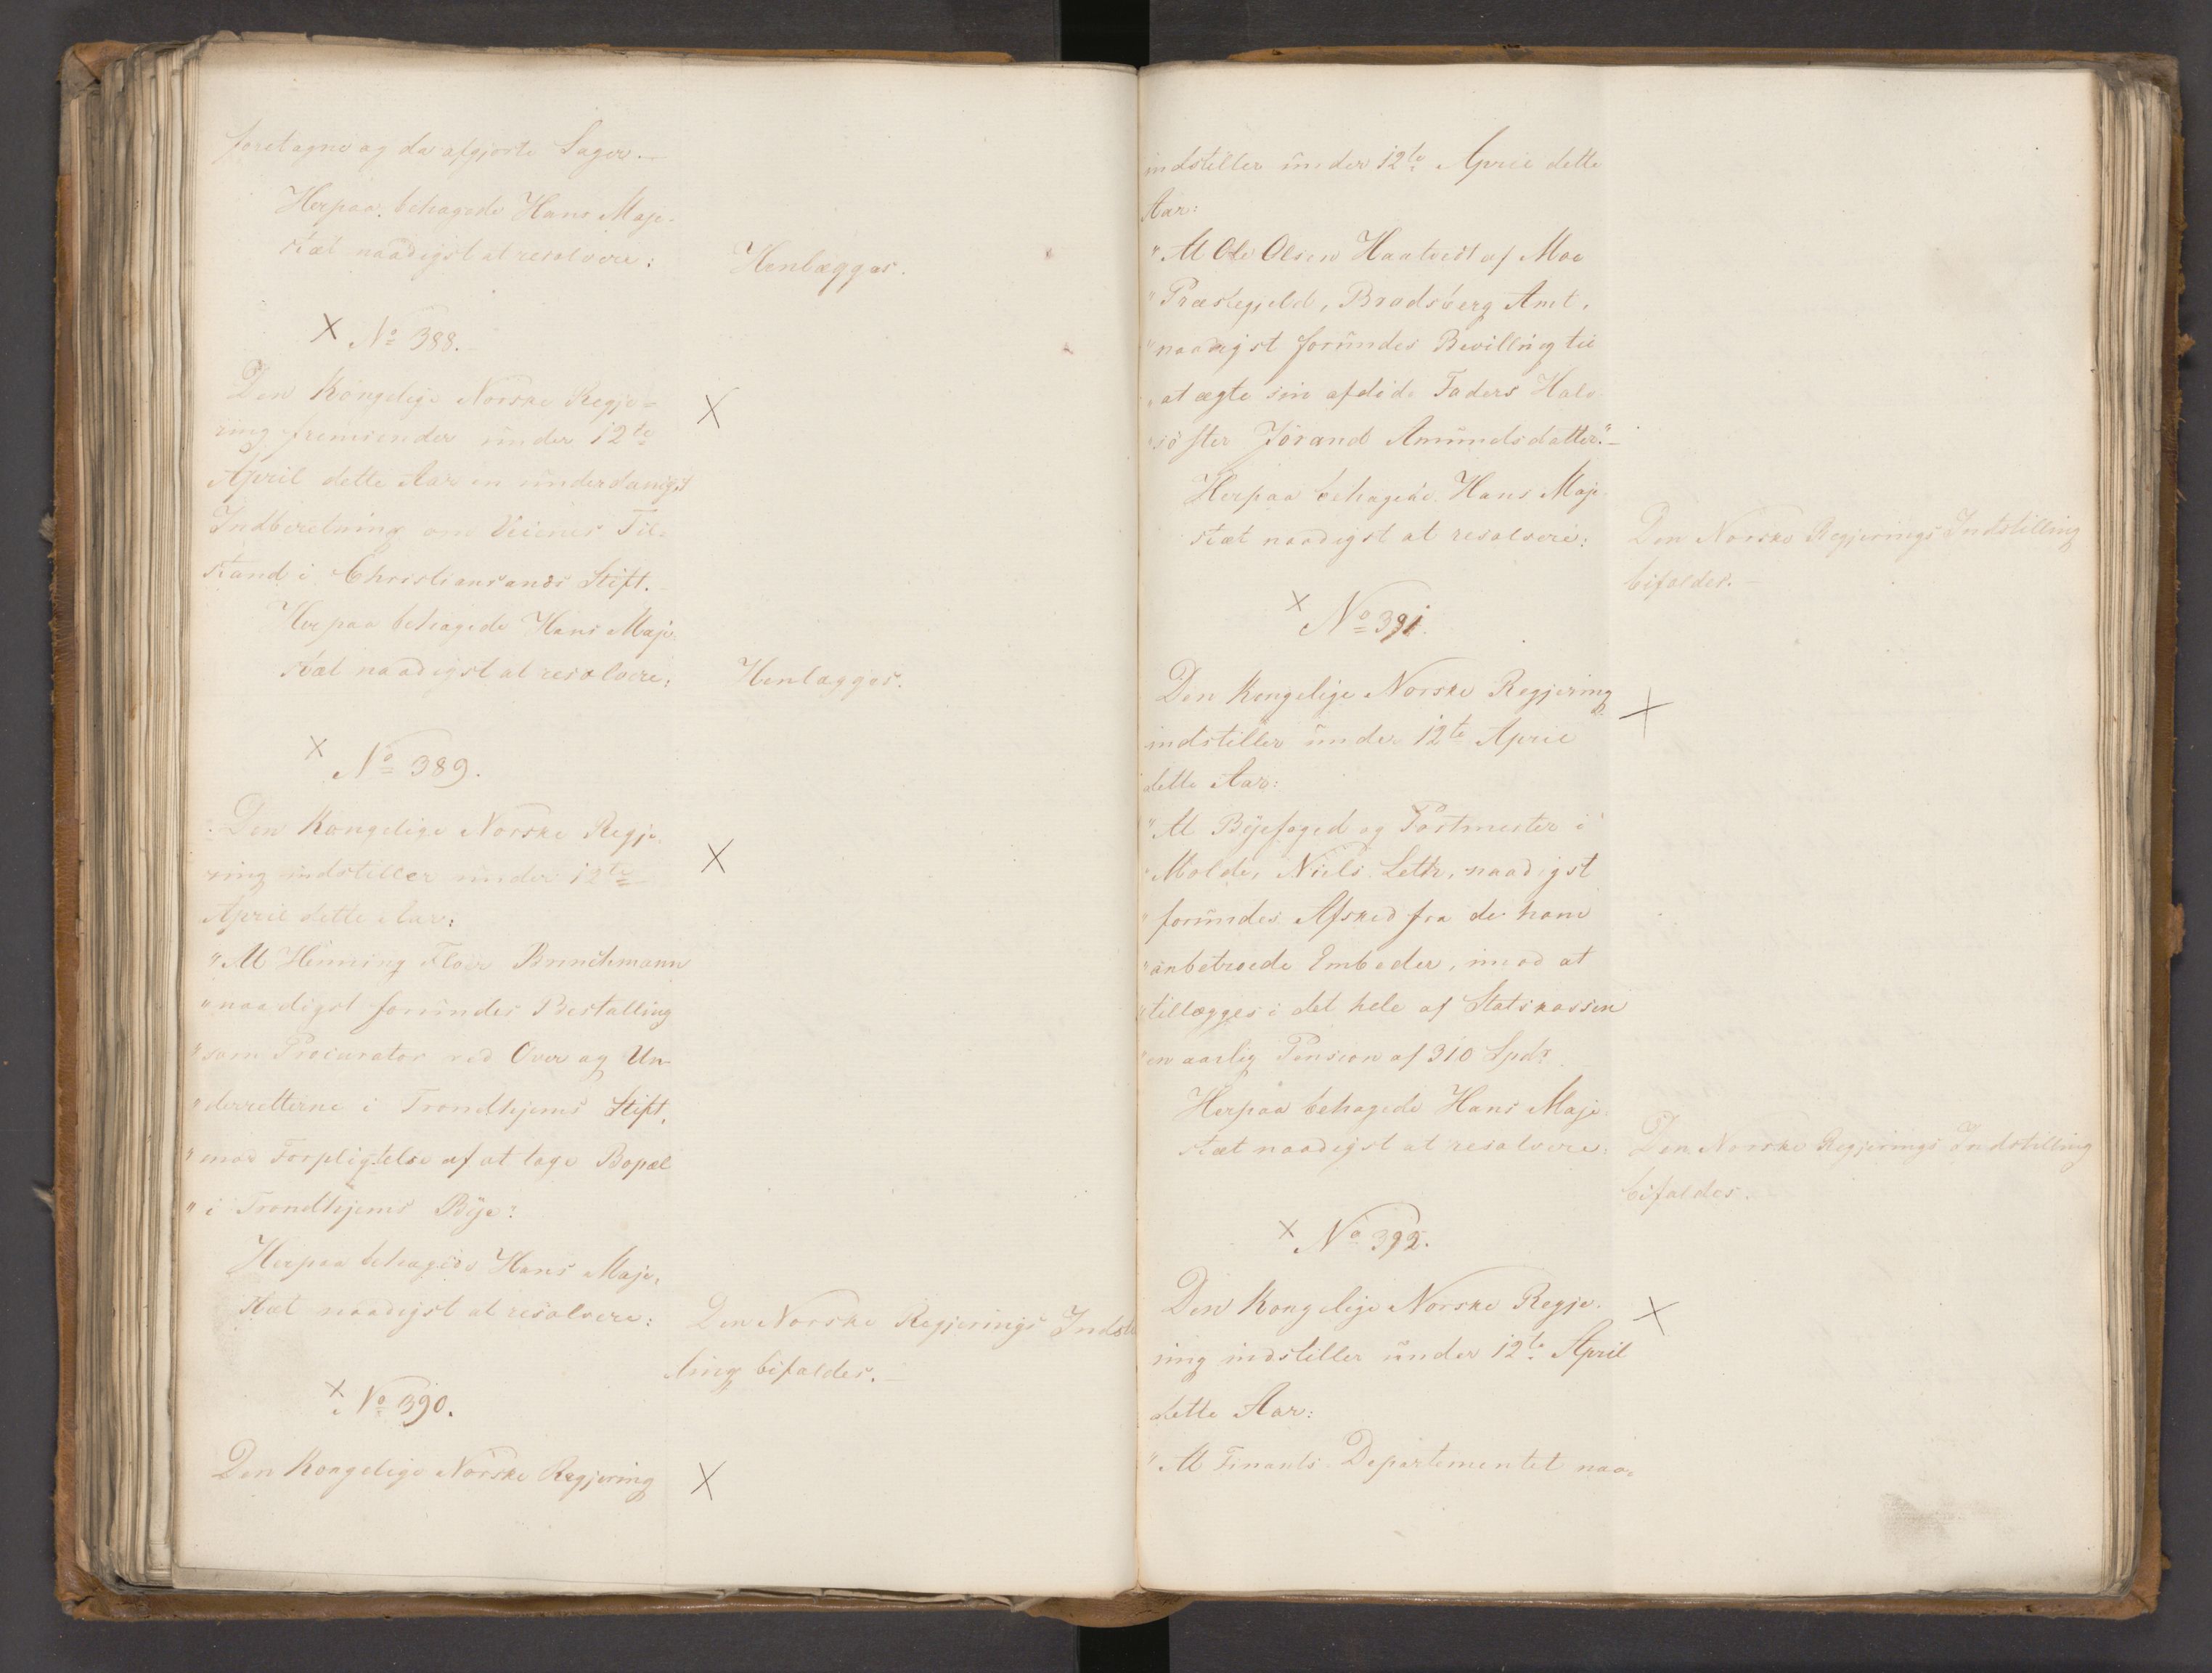 foretagne og da afgjorte Sager.—
Herpaa behagede Hans Maje-
stæt naadigst at resolvere:
Henlægges.
X No 388.
Den Kongelige Norske Regje-
X
ring fremsender under 12te
April dette Aar en underdanigst
Indberetning om Veienes Til-
stand i Christiansands Stift.
Herpaa behagede Hans Maje-
stæt naadigst at resolvere:
Henlægges.
X No 389.
Den Kongelige Norske Regje-
X
ring indstiller under 12te
April dette Aar:
"At Henning Floer Brinchmann
"naadigst forundes Bestalling
"som Procurator ved Over og Un-
"derretterne i Trondhjems Stift,
"mod Forpligtelse af at tage Bopæl
"i Trondhjems Bye".
Herpaa behagede Hans Maje-
stæt naadigst at resolvere:
Den Norske Regjerings Indstil
ling bifaldes.—
X No 390.
Den Kongelige Norske Regjering
X
indstiller under 12te April dette
Aar:
"At Ole Olsen Haatvedt af Moe
"Præstegjeld, Bradsberg Amt,
"naadigst forundes Bevilling til
"at ægte sin afdøde Faders Halv-
"söster Jörand Amundsdatter."—
Herpaa behagede Hans Maje-
stæt naadigst at resolvere:
Den Norske Regjerings Indstilling
bifaldes.—
X No 391.
Den Kongelige Norske Regjering
X
indstiller under 12te April
dette Aar:
"At Byefoged og Postmester i
"Molde, Niels Leth, naadigst
"forundes Afsked fra de ham
"anbetroede Embeder, imod at
"tillægges i det hele af Statskassen
"en aarlig Pension af 310 Spdr
Herpaa behagede Hans Maje-
stæt naadigst at resolvere:
Den Norske Regjerings Indstilling
bifaldes.
X No 392.
Den Kongelige Norske Regje-
X
ring indstiller under 12te April
dette Aar:
"At Finants-Departementet naa-